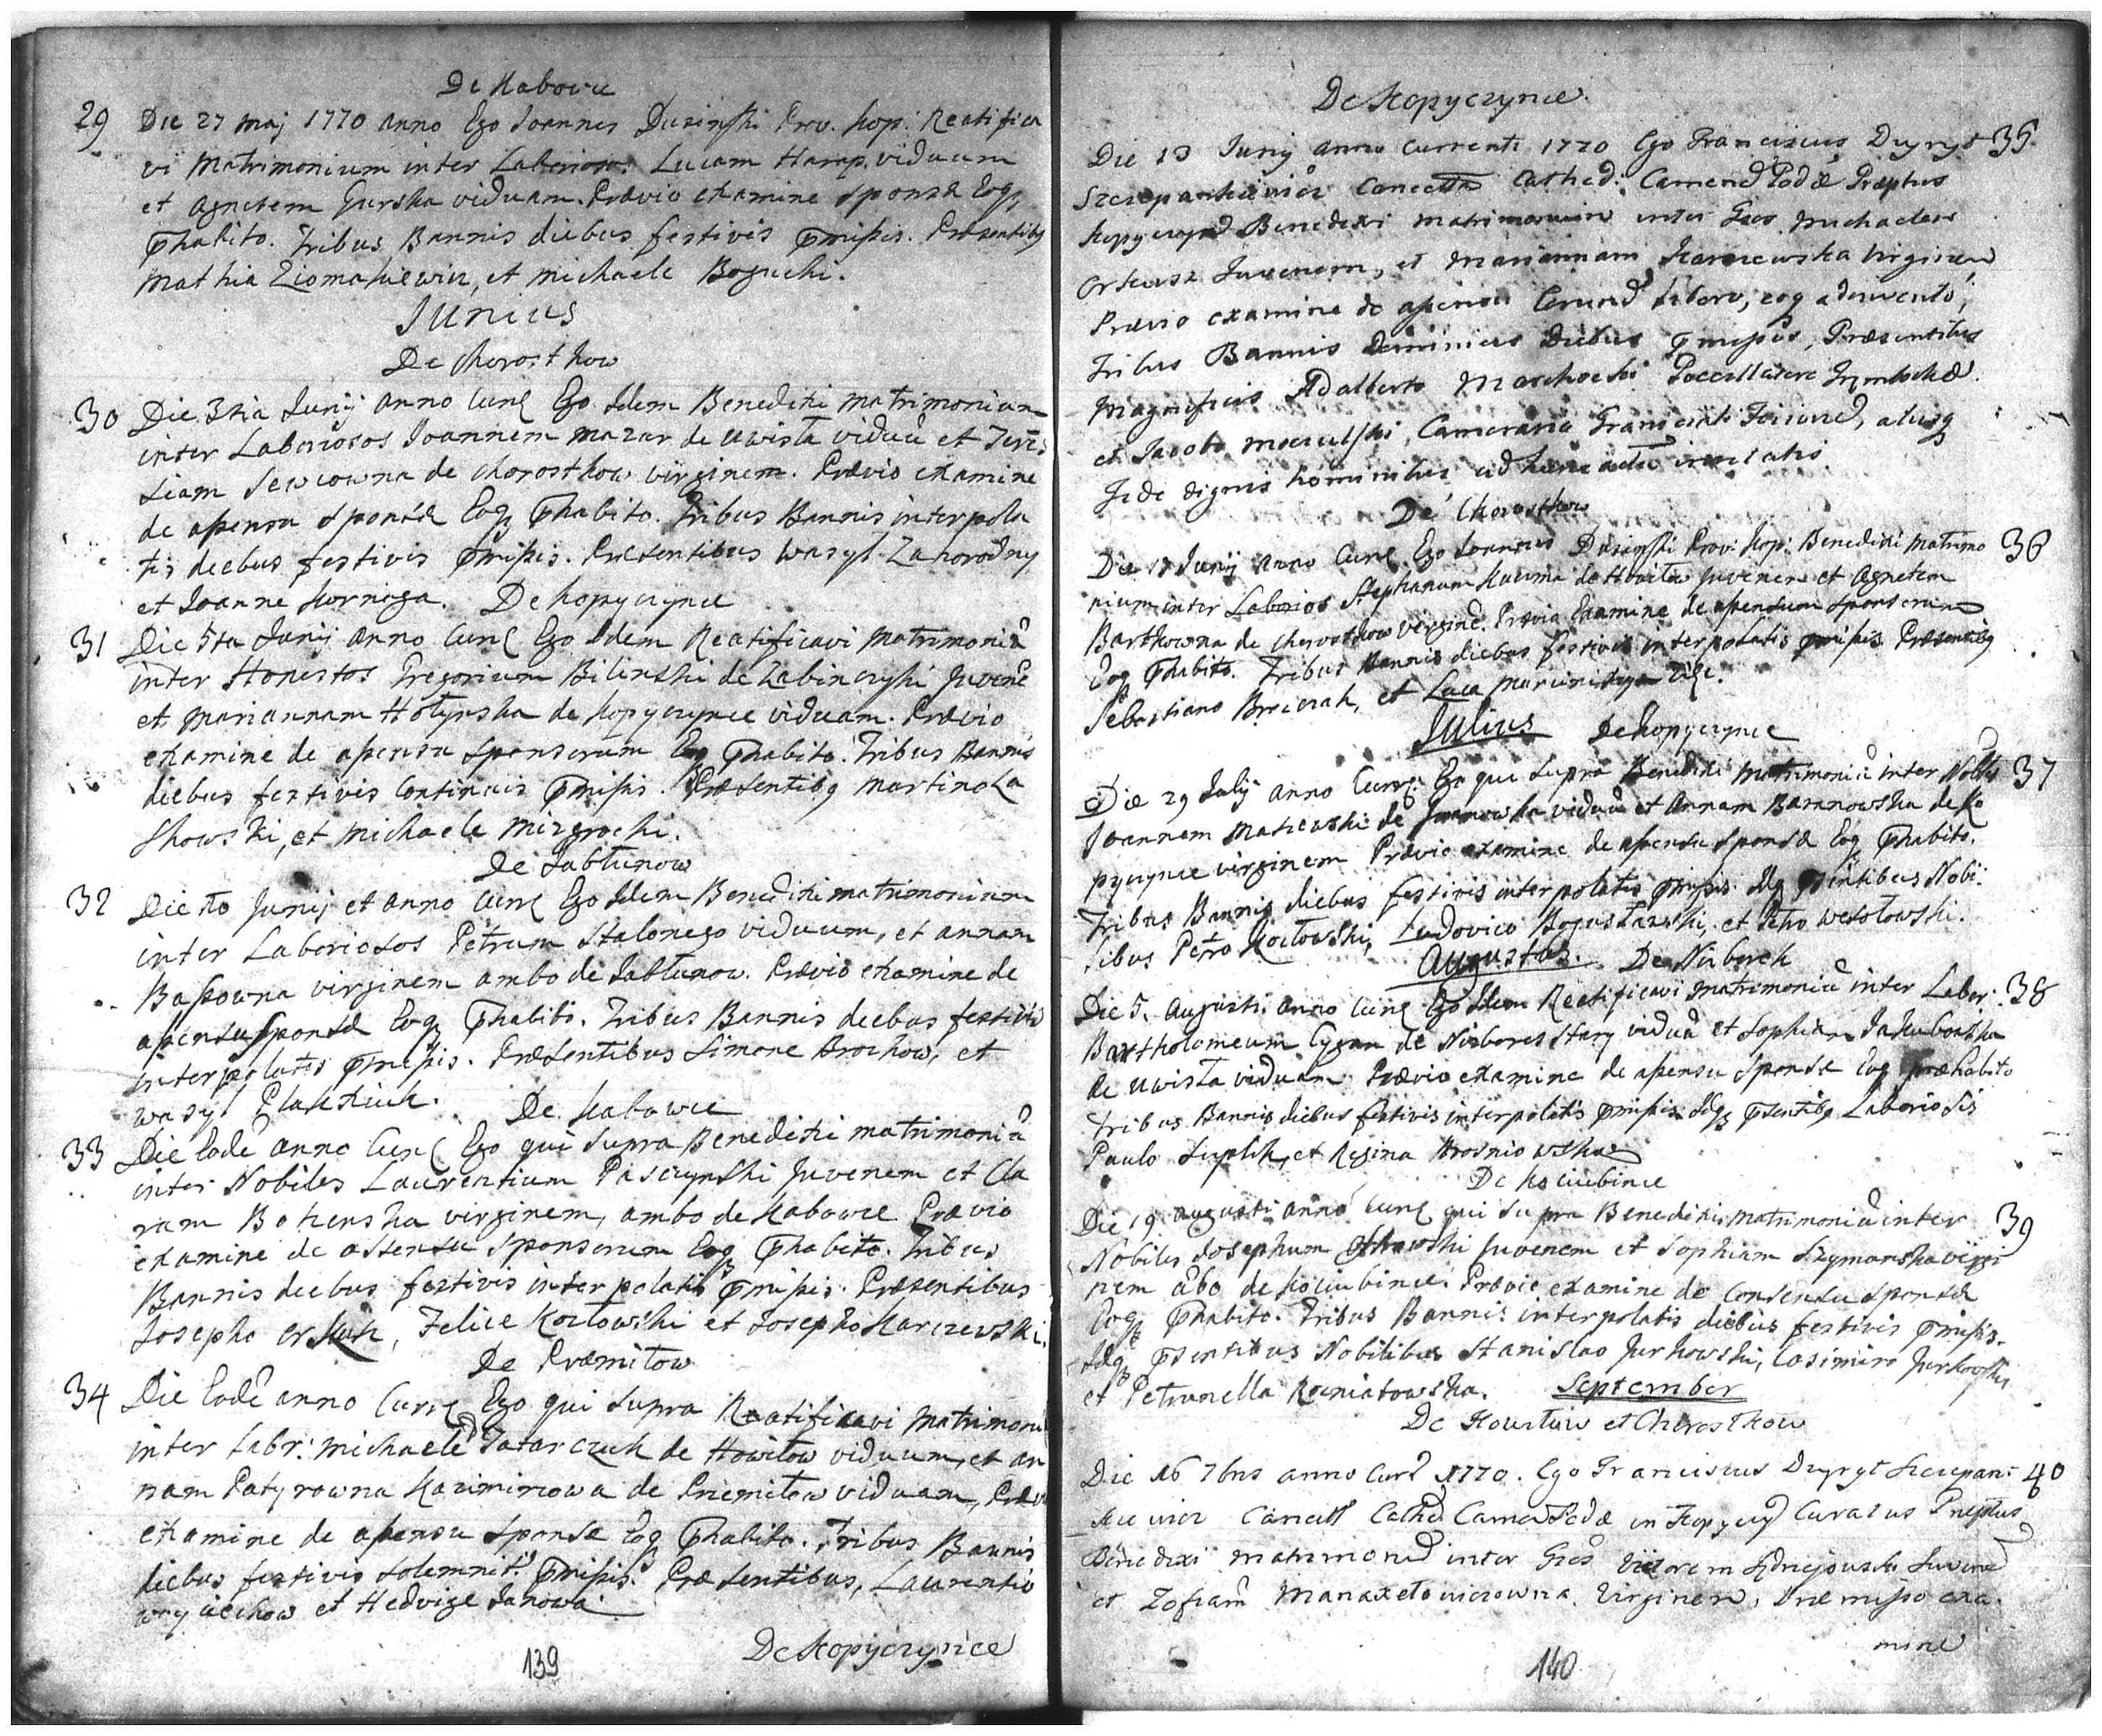 De Kabowce
29 Die 27 Maj 1770 anno Ego Joannes Dusinski Prov. Kop: Reatifica
vi Matrimonium inter Laborios: Lucam Harap. viduum
et Agnetem Gurska viduam. Prævio examine Sponsæ Eoq
Phabito. Tribus Bannis diebus festivis Pmissis. Præsentibq
Mathia Ziomakiewicz, et Michaele Bogucki.
Junius
De Chorostkow
30 Die 3tia Junij anno Curre Ego Idem Benedixi Matrimonium
inter Laboriosos Joannem Mazur de Uwista viduũ et Tere
siam Sewcowna de Chorostkow virginem. Prævio examine
de assensu Sponsæ Eoq Phabito. Tribus Bannis interpola
tis diebus festivis Pmissis. Præsentibus Wasyl Zahorodny
et Joanne Korniga. De Kopyczynce
31 Die 5ta Junij anno Curre Ego Idem Reatificavi Matrimoniũ
inter Honestos Gregorium Bilinski de Zabinczyki Juvenẽ
et Mariannam Hołynska de Kopyczynce viduam. Prævio
examine de assensu Sponsorum Eoq Phabito. Tribus Bannis
diebus festivis Continuis Pmissis. Præsentibq Martino La
skowski, et Michaele Mizgrocki.
De Jabłunow
32 Die 10 Junij et anno Curre Ego Idem Benedixi matrimonium
inter Laboriosos Petrum Stalonego viduum, et annam
Bassowna virginem ambo de Jabłunow. Prævio examine de
assensu Sponsæ Eoq Phabito. Tribus Bannis diebus festivis
interpolatis Pmissis. Præsentibus Simone Brochow, et
Wasyl
De Kabowce
33 Die Eodẽ anno Curre Ego qui supra Benedixi matrimoniũ
inter Nobiles Laurentium Pasczynski Juvenem et Cla
ram Bokenska virginem, ambo de Kabowce Prævio
examine de assensu Sponsorum Eoq Phabito. Tribus
Bannis diebus festivis interpolatis Pmissis. Præsentibus
Josepho Felice Kozłowski et Josepho Karczewski.
De Przemiłow
34 Die Eodẽ anno Curre Ego qui supra Reatificavi Matrimoniũ
inter Labr: Michaelẽ Tatarczuk de Howiłow viduum, et an
nam Patyrowna Kazimirowa de Przemiłow viduam, Præv
examine de assensu Sponsæ Eoq Phabito. Tribus Bannis
diebus festivis solemnit: Pmissis. Præsentibus, Laurentio
et Hedvige Janowa
De Kopyczynce
139
De Kopyczynce
Die 13 Junij anno currenti 1770 Ego Franciscus Dyzygt 35
Szczepankiewicz Cathed: Camened Podæ Præptus
Kopyczynd Benedixi matrimonium inter Gnos Michaelem
Juvenem, et Mariannam Karczewska Virginem
Prævio examine de assensu libero, eoq adinvento,
Tribus Bannis Dominicis Diebus Pmissis, Præsentibus
Magnificis Adalberto Marchocki
et Jacobo aliisq
fide dignis hominibus ad hunc actũ invitatis
De Chorostkow
Die 17 Junij anno Curre Ego Joannes Dusinski Prov: Kop: Benedixi Matrimo 36
nium inter Laborios Stephanum Kuzma de Howiłow Juvenem et Agnetem
Bartkowna de Chorostkow virginẽ. Prævio Examine de assensum Sponsorum
Eoq Phabito. Tribus Bannis diebus festivis interpolatis Pmissis Præsentibq
Sebastiano et Luca
Julius De Kopyczynce
Die 29 Julij anno Curre: Ego qui supra Benedixi Matrimoniũ inter Nobiles 37
Joannem Maciewski de viduũ et Annam Baranowska de Ko
pyczynce virginem Prævio examine de assensu Sponsæ Eoq Phabito.
Tribus Bannis diebus festivis interpolatis Pmissis Idq Psentibus Nobi:
libus Petro Kozłowski, Ludovico Bogusławski, et Petro Wesołowski.
Augustus. De Nizborek
Die 5. Augusti anno Curre Ego Idem Reatificavi Matrimoniũ inter Labor: 38
Bartholomeum Cygan de Nizborek Stary viduũ et Sophiam
de Uwista viduam Prævio examine de assensu Sponsæ Eoq Præhabito
Tribus Bannis diebus festivis interpolatis Pmissis Idq Psentibq Laboriosis
Paulo et Regina
De Kociubince
Die 19 Augusti anno Curre qui supra Benedixi matrimoniũ inter 39
Nobiles Josephum Juvenem et Sophiam Szymanska virgi
nem ãbo de Kociubince. Prævio examine de Consensu Sponsæ
Eoq Phabito. Tribus Bannis interpolatis diebus festivis Pmissis.
Idq Psentibus Nobilibus Stanislao Jurkowski, Casimiro Jurkowski
et Petronella Rozniatowska. September
De et Chorostkow
Die 16 7bris anno Curr 1770. Ego Franciscus Dyzygt Szczepan: 40
kiewicz Cathd Podæ in Kopycz Curatus Præptus
Benedixi matrimoniũ inter Gnos Juvenẽ
et Zofiam Virginem, Præmisso exa:
mine
140